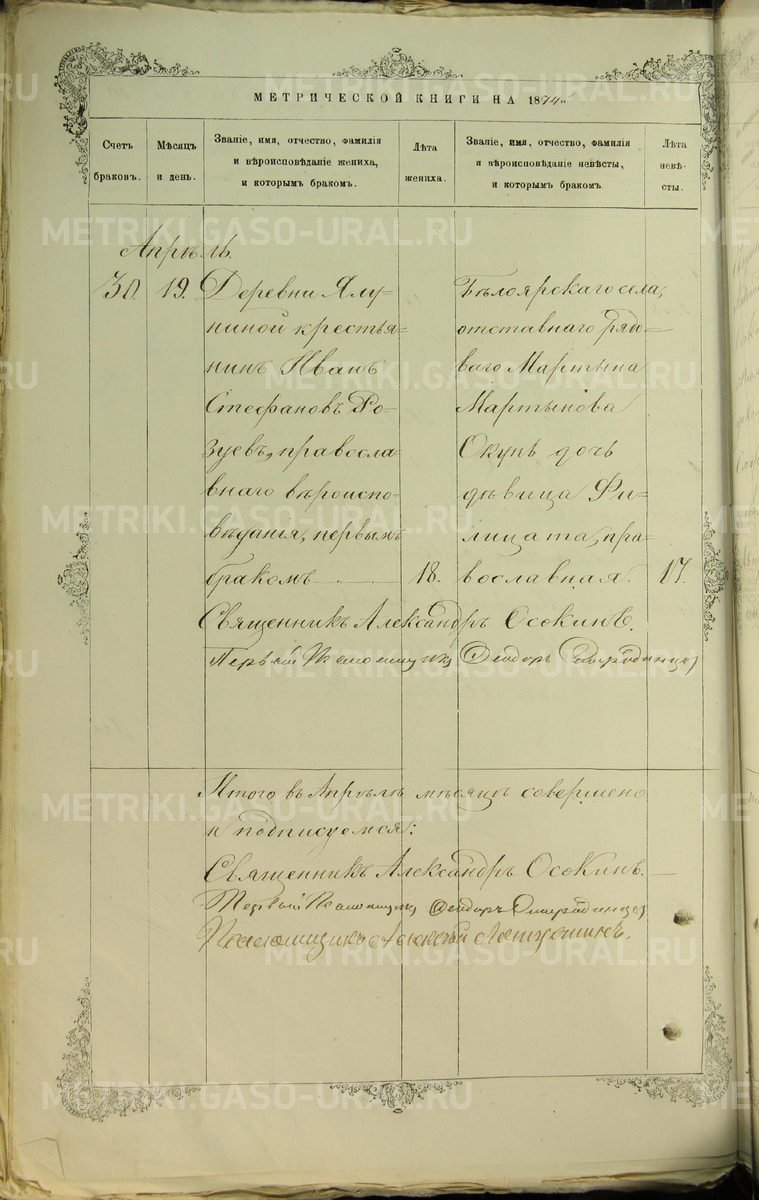 МЕТРИЧЕСКОЙ КНИГИ НА 1874
Счетъ браковъ.
Мѣсяцъ и день.
Званіе, имя, отчество, фамилія
и вѣроисповѣданіе жениха,
и которымъ бракомъ.
Лѣта жениха.
Званіе, имя, отчество, фамилія
и вѣроисповѣданіе невѣсты,
и которымъ бракомъ.
Лѣта невѣ-
сты.
Апрѣль.
30. 19.
Деревни Ялу-
ниной крестья-
нинъ Иванъ
Стефановъ Ро-
зуевъ, правосла-
внаго вѣроиспо-
вѣданія, первымъ
бракомъ 18.
Бѣлоярскаго села,
отставнаго рядо-
ваго Мартына
Мартынова
Окунь дочь
дѣвица Фи-
лицата, пра-
вославная. 17.
Священникъ Александръ Осокинъ.
Первый Псаломщикъ Ѳеодоръ
Итого въ Апрѣлѣ мѣсяцѣ совершено
и подписуемся:
Священникъ Александръ Осокинъ.
Первый Псаломщикъ Ѳеодоръ
Псаломщикъ Алексѣй
METRIKI.GASO-URAL.RU